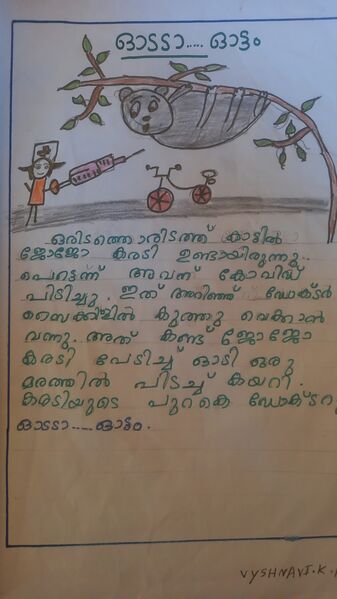 ഓടടാ..... ഓട്ടം
ഒരിടത്തൊരിടത്ത് കാട്ടിൽ
ജോജോ കരടി ഉണ്ടായിരുന്നു..
പെട്ടെന്ന് അവന് കോവിഡ്
പിടിച്ചു. ഇത് അറിഞ്ഞ് ഡോക്ടർ
സൈക്കിളിൽ കുത്തു വെക്കാൻ
വന്നു. അത് കണ്ട് ജോജോ
കരടി പേടിച്ച് ഓടി ഒരു
മരത്തിൽ പിടച്ച് കയറി.
കരടിയുടെ പുറകെ ഡോക്ടറു
ഓടടാ.....ഓട്ടം.
VYSHNAVI.K.